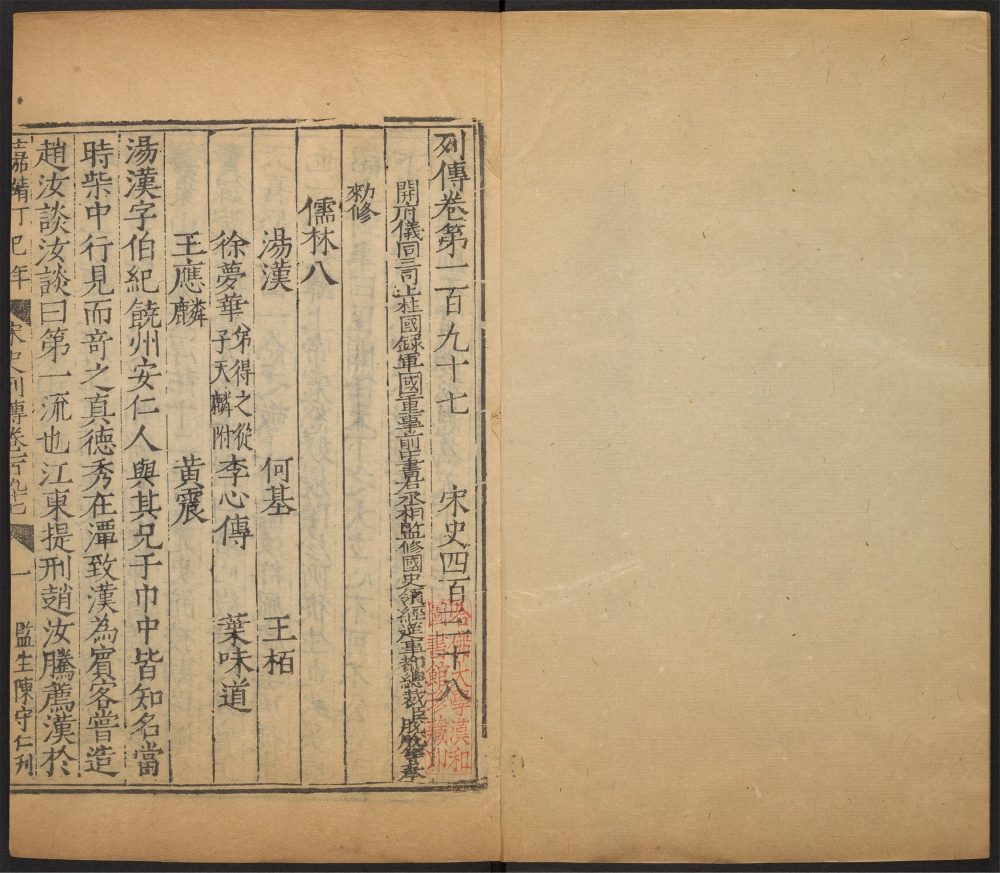 列傳卷第一百九十七 宋史四百三十八
開府儀同三司上柱國錄軍國重事前中書右丞相監修國史領經筵事都總裁臣脫脫等奉
勑修
儒林八
湯漢 何基 王栢
徐夢莘 弟得之從子天麟附 李心傳 葉味道
王應麟 黃震
湯漢字伯紀饒州安仁人與其兄于巾中皆知名當
時柴中行見而奇之真德秀在潭致漢為賓客嘗造
趙汝談汝談曰第一流也江東提刑趙汝騰薦漢於
嘉靖丁巳年 宋史列傳卷一百九十七 一 監生陳守仁刊
哈佛大學漢和
圖書館珍藏印